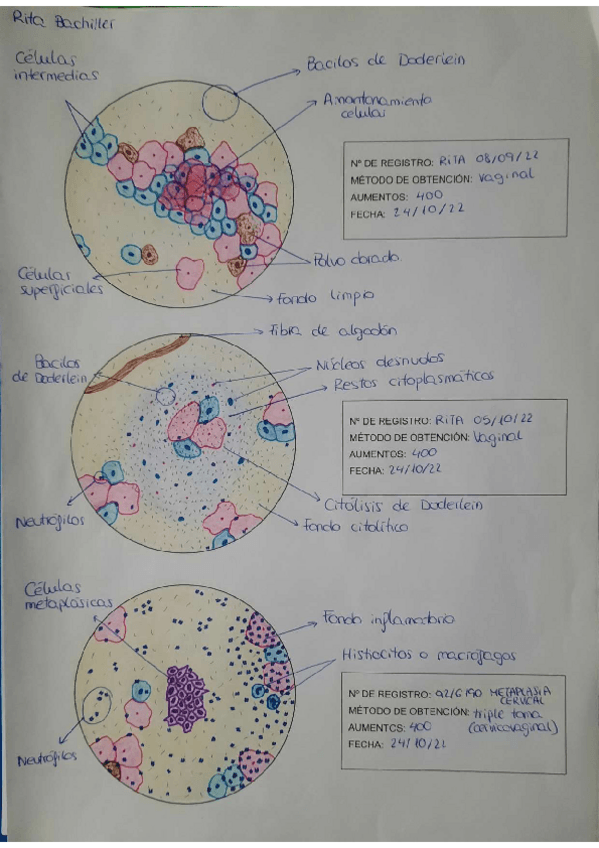 Rita Bachiller
Células
intermedias
Bacilos de Doderlein
Amontonamiento
celular
Nº DE REGISTRO: RITA 08/09/22
MÉTODO DE OBTENCIÓN: Vaginal
AUMENTOS: 400
FECHA: 24/10/22
Células
superficiales
Polvo dorado
Fondo limpio
Fibra de algodón
Bacilos
de Doderlein
Núcleos desnudos
Restos citoplasmáticos
Nº DE REGISTRO: RITA 05/10/22
MÉTODO DE OBTENCIÓN: Vaginal
AUMENTOS: 400
FECHA: 24/10/22
Neutrófilos
Citólisis de Doderlein
Fondo citolítico
Células
metaplásicas
Fondo inflamatorio
Histiocitos o macrófagos
Nº DE REGISTRO: 92/G190 METAPLASIA
CERVICAL
MÉTODO DE OBTENCIÓN: triple toma
AUMENTOS: 400 (cervicovaginal)
FECHA: 24/10/22
Neutrófilos